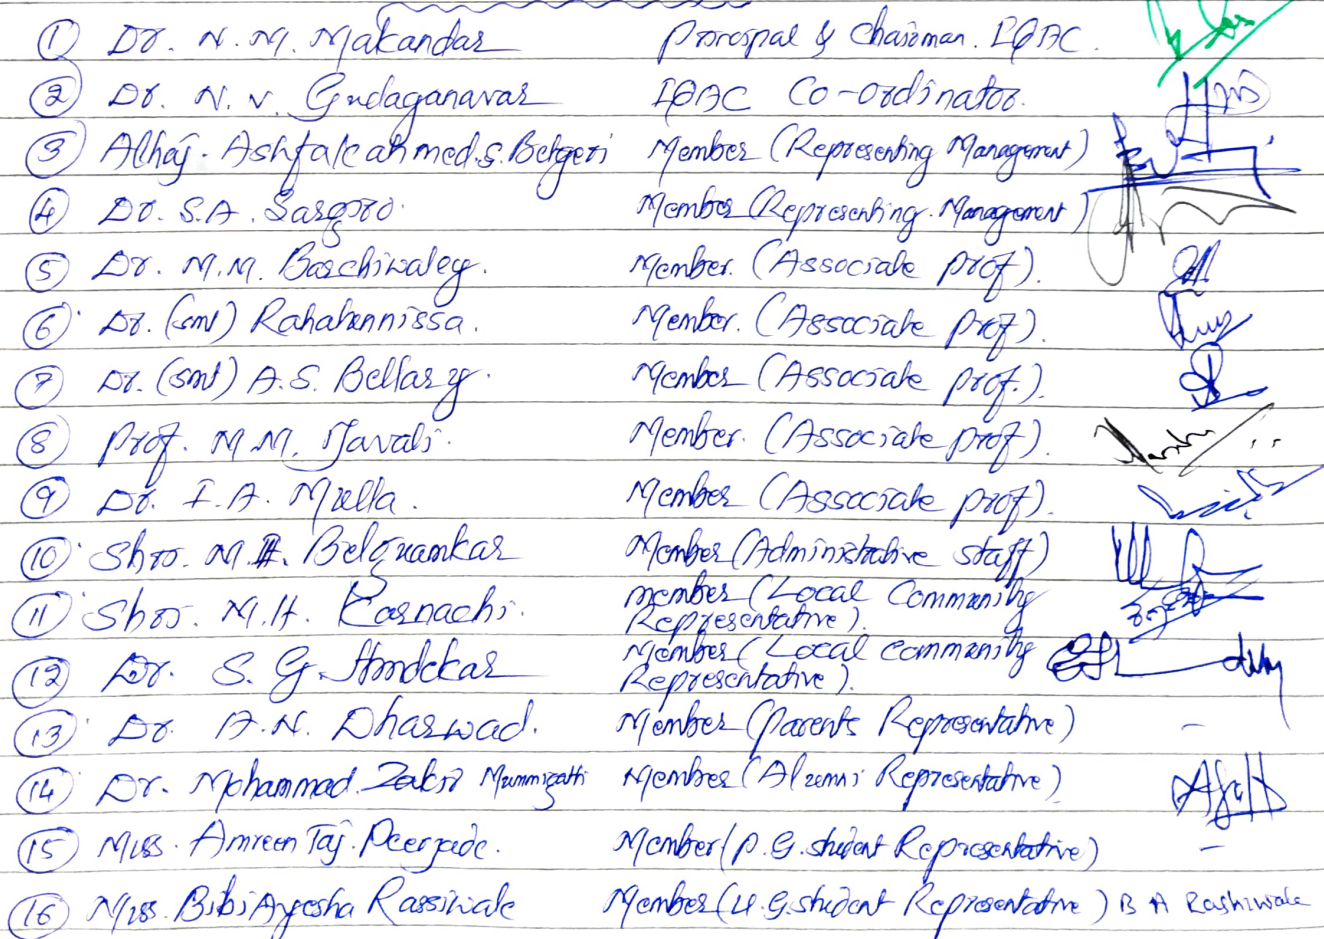 1 Dr. N. M. Makandar Principal & Chairman. IQAC.
2 Dr. N. V. Gudaganavar IQAC Co-ordinator.
3 Alhaj. Ashfakahmed.S. Betgeri Member (Representing Management)
4 Dr. S.A. Sargiro. Member (Representing Management)
5 Dr. M.M. Baschiwaley. Member. (Associate prof).
6 Dr. (smt) Rahatunnissa. Member. (Associate prof).
7 Dr. (smt) A.S. Bellary. Member (Associate prof.).
8 Prof. M.M. Javali. Member. (Associate prof).
9 Dr. I.A. Mulla. Member (Associate prof).
10 Shri. M.H. Belguamkar Member (Administrative staff)
11 Shri. M.H. Karnachi. member (Local Community
Representative).
12 Dr. S. G. Hondekar Member (Local community
Representative).
13 Dr. A.N. Dharwad. Member (parents Representative) -
14 Dr. Mohammad Zakir Mummigatti Member (Alumni Representative)
15 Miss. Amreen Taj. Peerjade. Member (P.G. student Representative) -
16 Miss. Bibi Ayesha Rassiwale Member (U.G. student Representative) B A Rashiwale